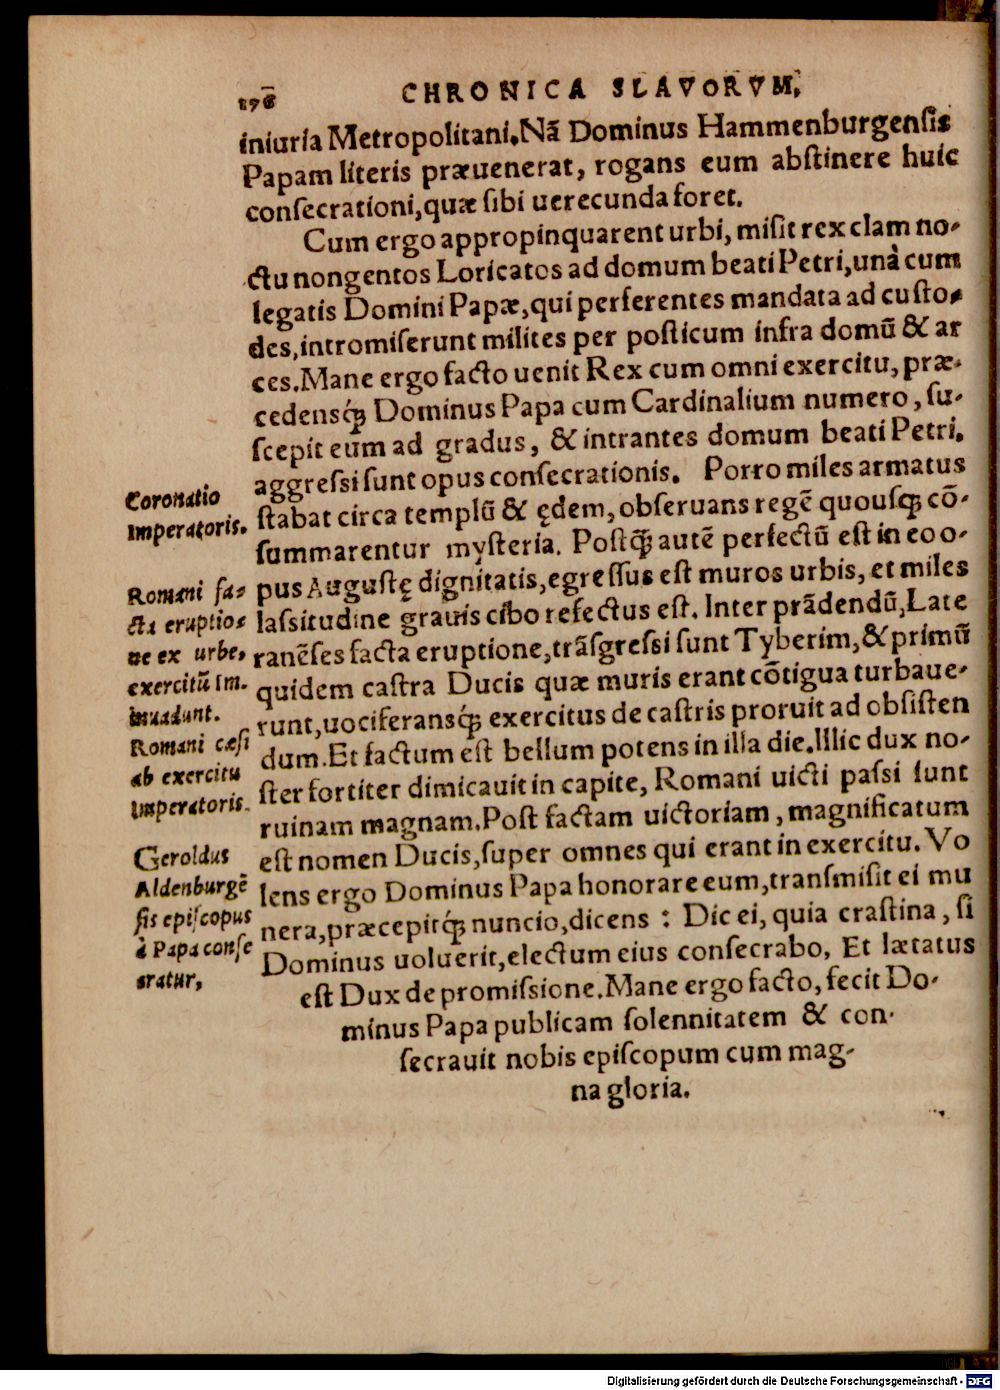 178
CHRONICA SLAVORVM,
iniuria Metropolitani. Nã Dominus Hammenburgensis
Papam literis præuenerat, rogans eum abſtinere huic
conſecrationi, quæ ſibi uerecunda foret.
Cum ergo appropinquarent urbi, miſit rex clam no-
ctu nongentos Loricatos ad domum beati Petri, unà cum
legatis Domini Papæ, qui perferentes mandata ad cuſto-
des, intromiſerunt milites per poſticum infra domũ & ar
ces. Mane ergo facto uenit Rex cum omni exercitu, præ-
cedensq́ꝫ Dominus Papa cum Cardinalium numero, ſu-
ſcepit eum ad gradus, & intrantes domum beati Petri,
aggreſsi ſunt opus conſecrationis. Porro miles armatus
ſtabat circa templũ & ędem, obſeruans regẽ quouſqꝫ cõ-
ſummarentur myſteria. Poſtq̃ꝫ autẽ perfectũ eſt in eo o-
pus Auguſtę dignitatis, egreſſus eſt muros urbis, et miles
laſsitudine grauis cibo refectus eſt. Inter prãdendũ, Late
ranẽſes facta eruptione, trãſgreſsi ſunt Tyberim, & primũ
quidem caſtra Ducis quæ muris erant cõtigua turbaue-
runt, uociferansq́ꝫ exercitus de caſtris proruit ad obſiſten
dum. Et factum eſt bellum potens in illa die. Illic dux no-
ſter fortiter dimicauit in capite, Romani uicti paſsi ſunt
ruinam magnam. Poſt factam uictoriam, magnificatum
eſt nomen Ducis, ſuper omnes qui erant in exercitu. Vo
lens ergo Dominus Papa honorare eum, tranſmiſit ei mu
nera, præcepitq́ꝫ nuncio, dicens : Dic ei, quia craſtina, ſi
Dominus uoluerit, electum eius conſecrabo, Et lætatus
eſt Dux de promiſsione. Mane ergo facto, fecit Do-
minus Papa publicam ſolennitatem & con-
ſecrauit nobis epiſcopum cum mag-
na gloria.
Coronatio
Imperatoris.
Romani fa-
cta eruptio-
ne ex urbe,
exercitũ Im.
inuadunt.
Romani cæſi
ab exercitu
Imperatoris.
Geroldus
Aldenburgẽ
ſis epiſcopus
à Papa conſe
cratur,
Digitalisierung gefördert durch die Deutsche Forschungsgemeinschaft - DFG